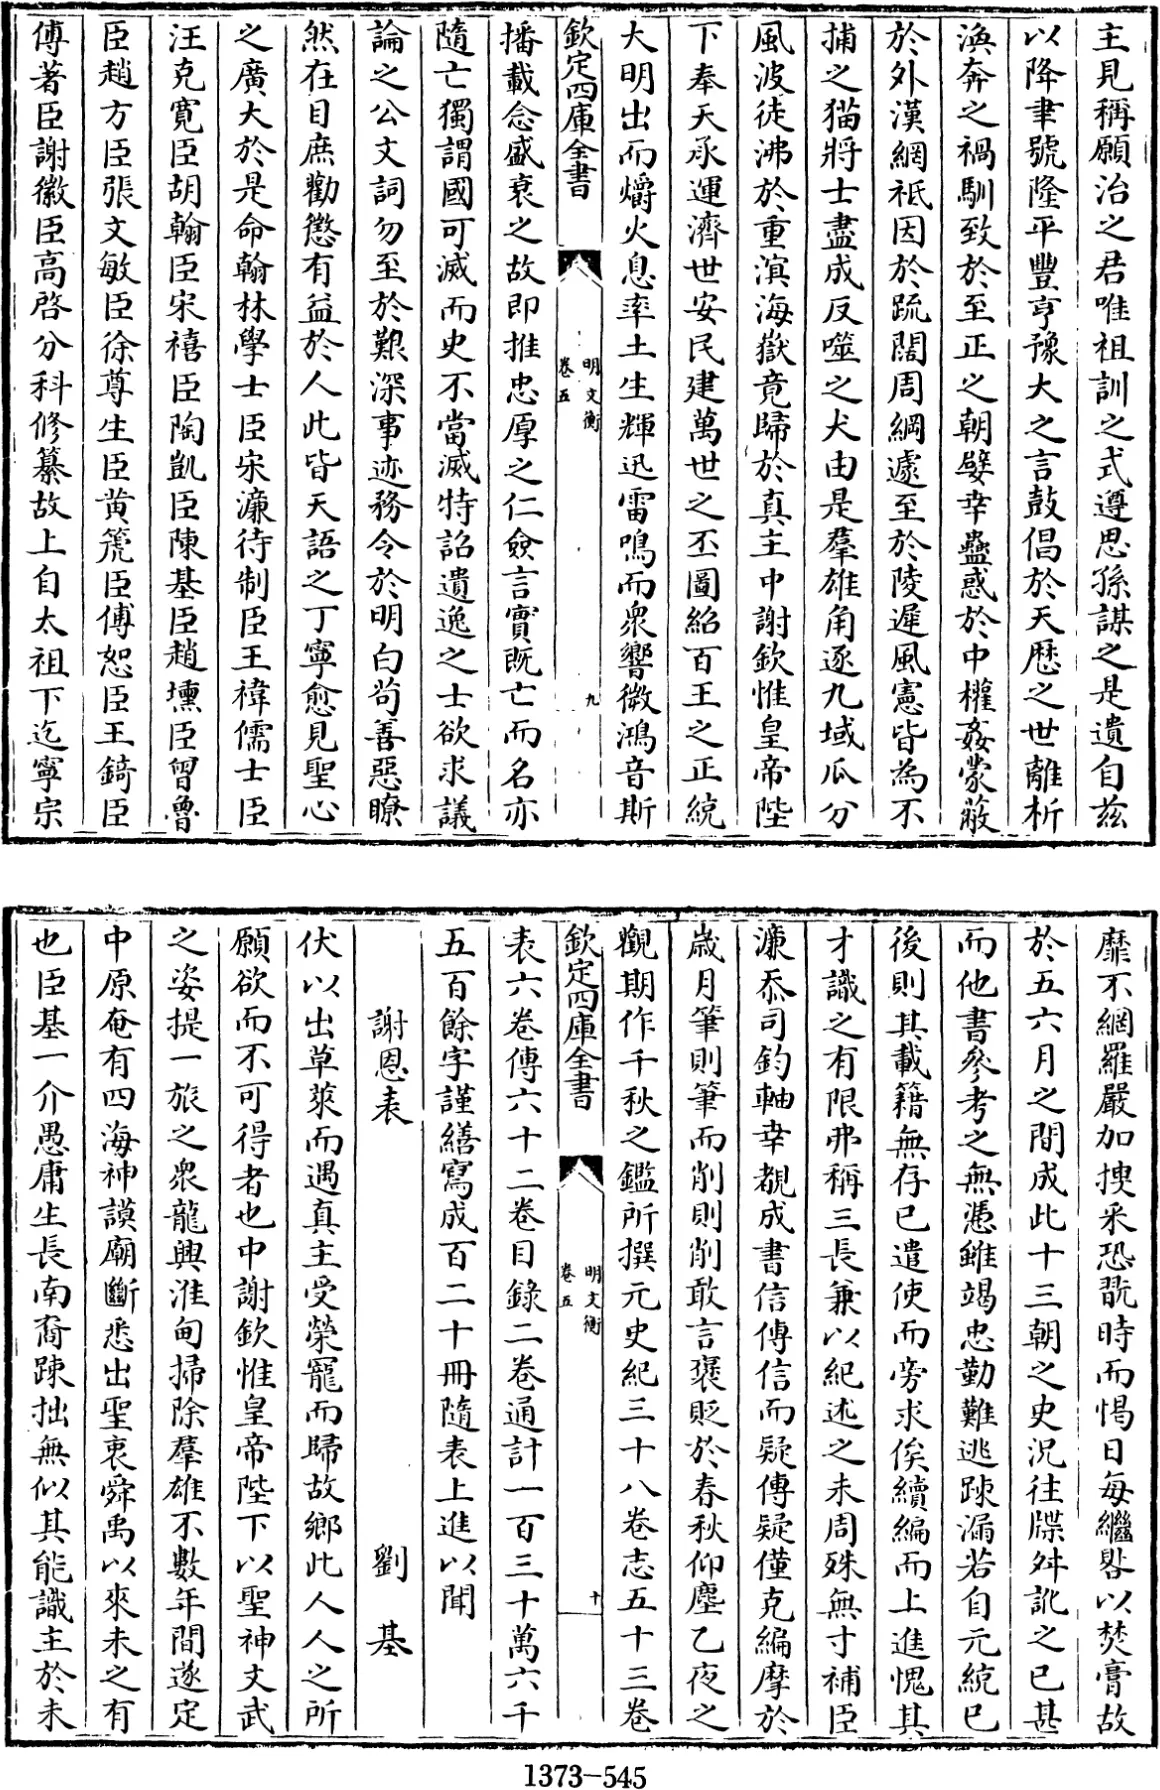 主見稱願治之君唯祖訓之式遵思孫謀之是遺自茲
以降聿號隆平豐亨豫大之言鼓倡於天厯之世離析
渙奔之禍馴致於至正之朝嬖幸蠱惑於中權姦蒙蔽
於外漢網祗因於疏闊周綱遽至於陵遲風憲皆為不
捕之猫將士盡成反噬之犬由是羣雄角逐九域瓜分
風波徒沸於重溟海嶽竟歸於真主中謝欽惟皇帝陛
下奉天承運濟世安民建萬世之丕圖紹百王之正統
大明出而爝火息率土生輝迅雷鳴而衆響微鴻音斯
欽定四庫全書
明文衡
卷五
九
播載念盛衰之故即推忠厚之仁僉言實既亡而名亦
隨亡獨謂國可滅而史不當滅特詔遺逸之士欲求議
論之公文詞勿至於艱深事迹務令於明白苟善惡瞭
然在目庶勸懲有益於人此皆天語之丁寧愈見聖心
之廣大於是命翰林學士臣宋濂待制臣王褘儒士臣
汪克寛臣胡翰臣宋禧臣陶凱臣陳基臣趙壎臣曾魯
臣趙方臣張文敏臣徐尊生臣黄箎臣傅恕臣王錡臣
傅著臣謝徽臣高啓分科修纂故上自太祖下迄寧宗
靡不網羅嚴加搜采恐翫時而愒日每繼晷以焚膏故
於五六月之間成此十三朝之史況往牒舛訛之已甚
而他書參考之無憑雖竭忠勤難逃踈漏若自元統已
後則其載籍無存已遣使而旁求俟續編而上進愧其
才識之有限弗稱三長兼以紀述之未周殊無寸補臣
濂忝司鈞軸幸覩成書信傳信而疑傳疑僅克編摩於
歲月筆則筆而削則削敢言褒貶於春秋仰塵乙夜之
觀期作千秋之鑑所撰元史紀三十八卷志五十三卷
欽定四庫全書
明文衡
卷五
十
表六卷傳六十二卷目錄二卷通計一百三十萬六千
五百餘字謹繕寫成百二十冊隨表上進以聞
謝恩表 劉基
伏以出草萊而遇真主受榮寵而歸故鄉此人人之所
願欲而不可得者也中謝欽惟皇帝陛下以聖神文武
之姿提一旅之衆龍興淮甸掃除羣雄不數年間遂定
中原奄有四海神謨廟斷悉出聖衷舜禹以來未之有
也臣基一介愚庸生長南裔踈拙無似其能識主於未
1373-545